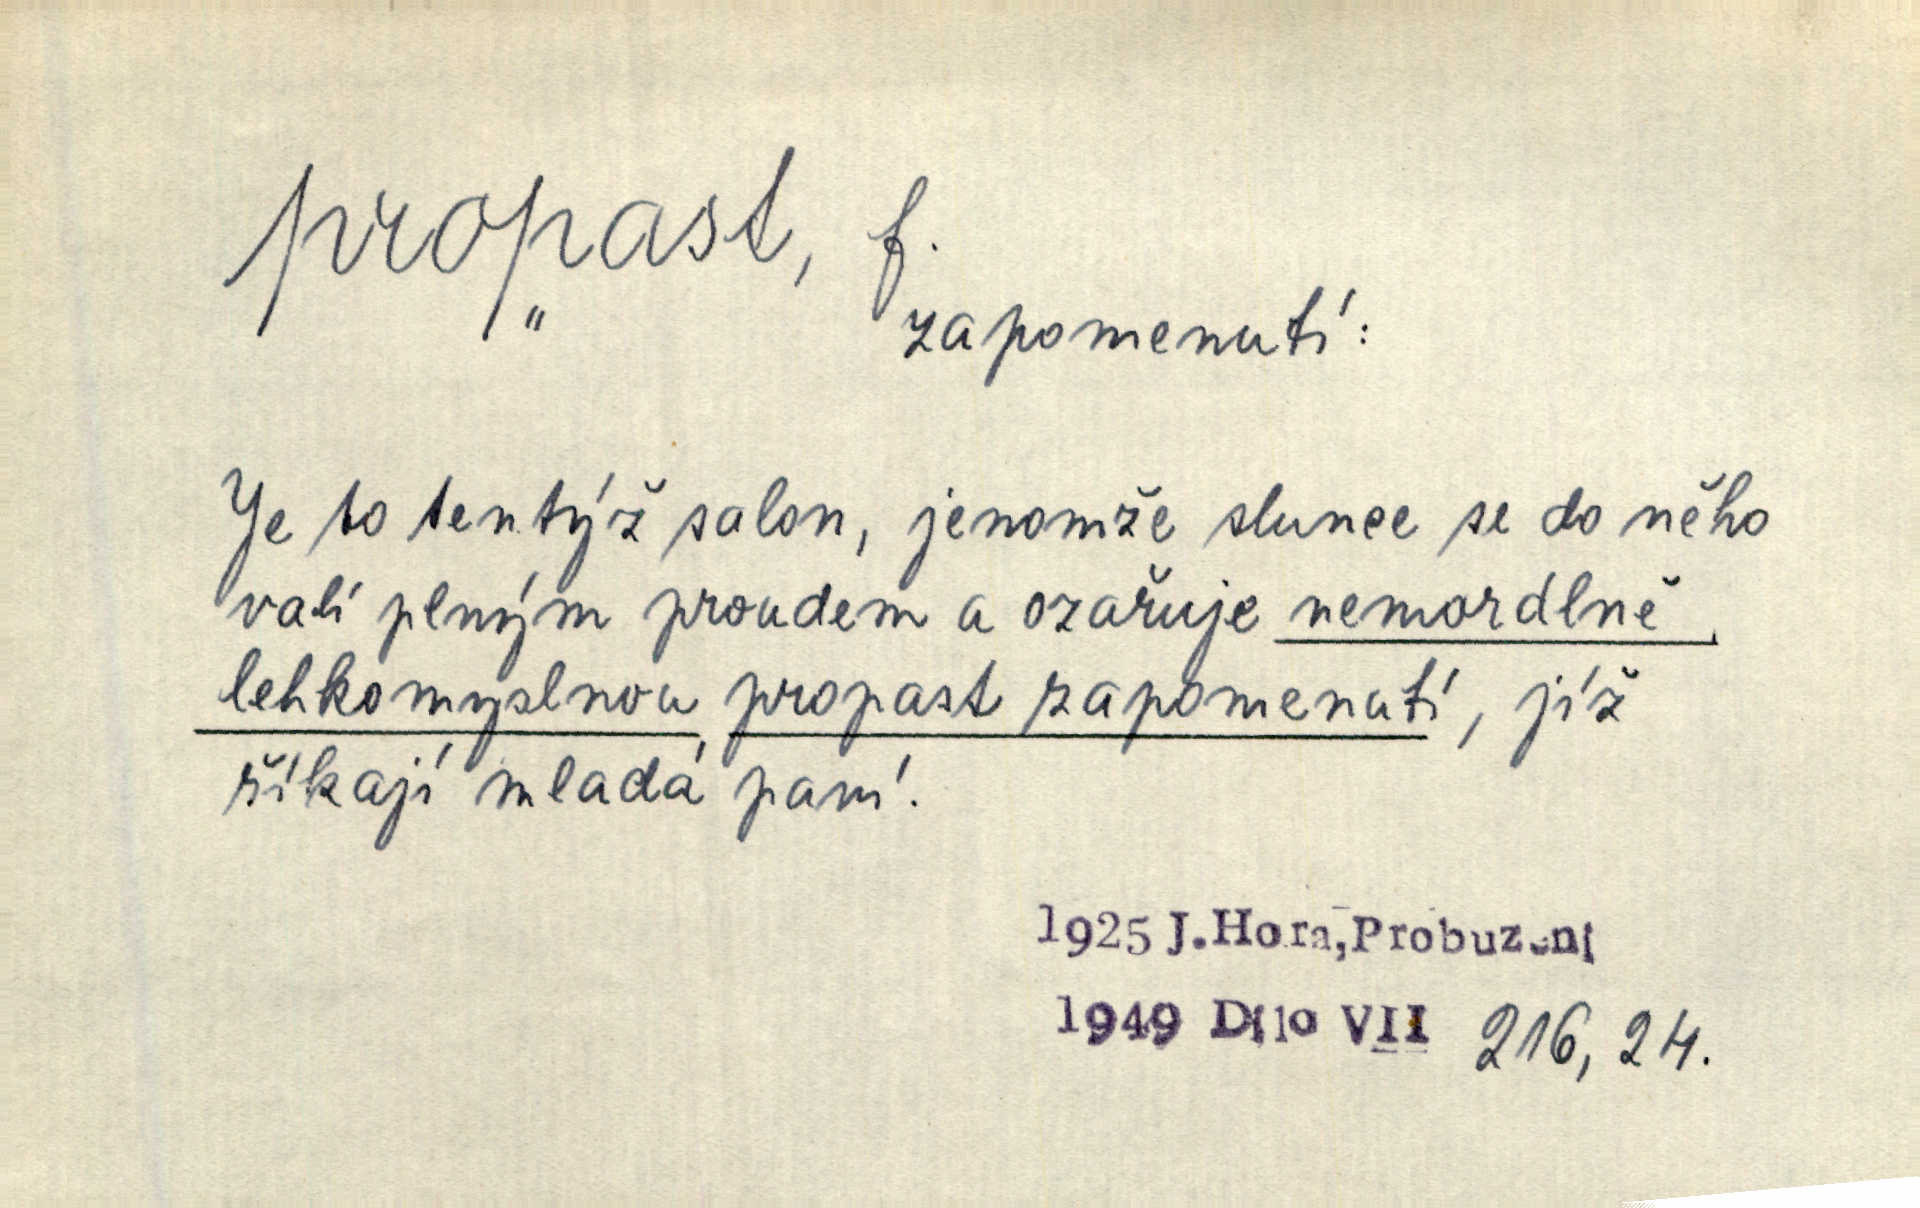 propast, f.
"
zapomenutí:
Je to tentýž salon, jenomže slunce se do něho
valí plným proudem a ozařuje nemordlně
lehkomyslnou propast zapomenutí, jíž
říkají mladá paní.
1925 J.Hora,Probuzení
1949 Dílo VII 216, 24.